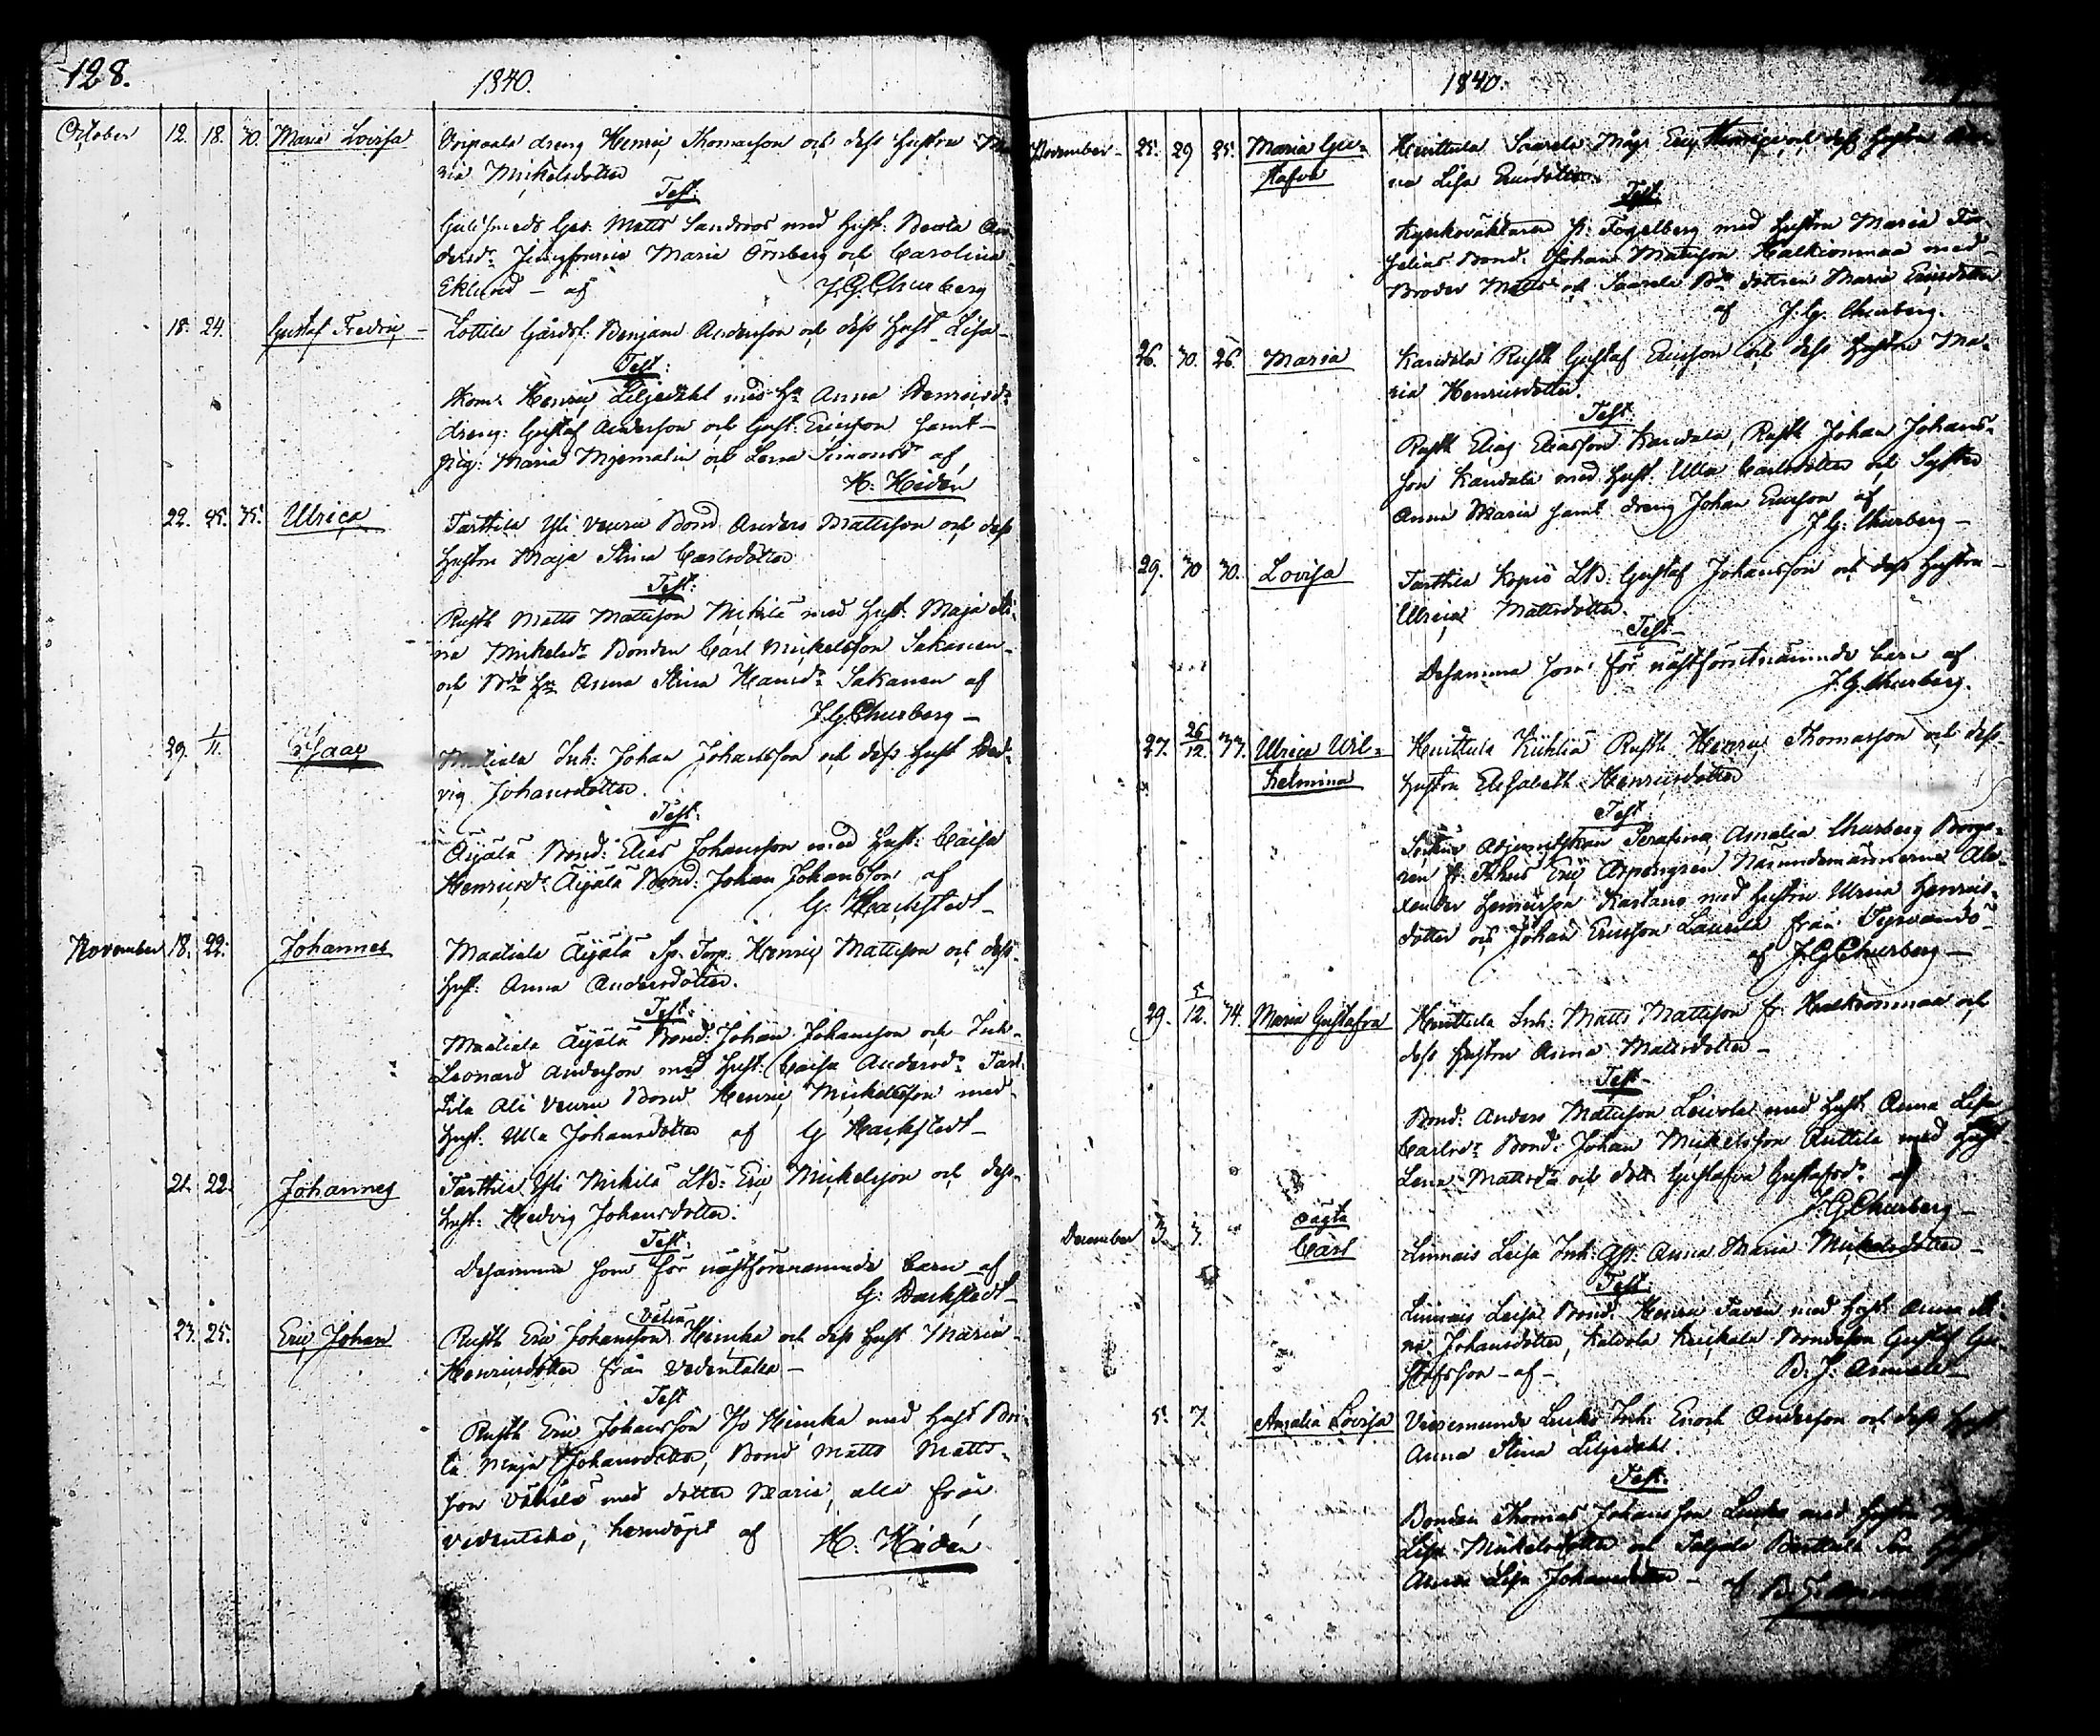 128.
1840.
October 12. 18. 30. Maria Lovisa Voipaala dreng Henric Thomasson och dess hustru Ma-
ria Mickelsdotter
Test:
Gulsmeds Ges. Matts Sandroos med Hust: Beata An-
dersd:r Jungfrurna Maria Örnberg och Carolina
Eklund – af J.G. Churberg
18. 24. Gustaf Fredric – Lottila Gårdsf: Benjam Andersson och dess Hust. Lisa –
Test:
Henric Liljedahl med H:u Anna Henricsd:r
dreng: Gustaf Andersson och Gust: Ericsson samt –
pig: Maria Mjemalin och Lena Simonsd:r af
H: Hidén
22. 25. 35. Ulrica Tarttila Yli Venna Bond Anders Mattsson och dess
hustru Maja Stina Carlsdotter
Test:
Rusth Matts Mattsson Mickilä med Hust. Maja Sti-
na Mickelsd:r Bonden Carl Mickelsson Sakanen –
och B:de H:u Anna Stina Hansd:r Sakanen af
J.G. Churberg –
29. 1/11. Isaac Inh: Johan Johansson och dess Hust Hed-
vig Johansdotter.
Test:
Äijälä Bond: Elias Johansson med Hust: Caisa
Henricsd:r Äijälä Bond: Johan Johansson af
G. Hackstedt –
November 18. 22. Johannes Maatiala Äijälä Sp. Torp. Henric Mattsson och dess
Hust: Anna Andersdotter.
Test:
Maatiala Äijälä Bond: Johan Johansson och Inh –
Leonard Andersson med Hust: Caisa Andersd:r Tart-
tila Ali Venna Bond Henric Mickelsson med
Hust. Ulla Johansdotter af G Hackstedt –
21. 22. Johannes Tarttila Yli Mickilä LB: Eric Mickelsson och dess
Hust: Hedvig Johansdotter.
Test:
Desamma som för nästförenämnde barn af
G: Hackstedt –
23. 25. Eric Johan Rusth Eric Johansson Heinka och dess Hust Maria
Henricsdotter från Vedentaka –
Test
Rusth Eric Johansson Iso Heinka med Hust Bri-
ta Maja Johansdotter, Bond Matts Matts-
son Vähälä med dotter Maria, alla från
Vedentaka, hemdöpt af H. Hidén
1840.
November – 25. 29 25. Maria Gu-
stafva Huittula Saarela Måg. Eric och dess hustru An-
na Lisa Ericsdotter
Test:
Kyrkoväktaren J: Fogelberg med hustru Maria
Bond. Johan Mattsson Halkionmaa med
Broder Matts och Saarela B:de dottren Maria Ericsdotter
af J. G. Churberg.
26. 30. 26. Maria Kandala Rusth Gustaf Ericsson och dess Hustru Ma-
ria Henricsdotter.
Test
Rusth Elias Eliasson Kandala, Rusth Johan Johans-
son Kandala med Hust: Ulla Carlsdotter och Syster
Anna Maria samt dreng Johan Ericsson af
J. G: Churberg –
29. 30 30. Lovisa Tarttila Kopio LB: Gustaf Johansson och dess hustru –
Ulrica Mattsdotter.
Test –
Desamma som för nästförutnämnde barn af
J. G. Churberg.
27. 26/12. 37. Ulrica Wil-
helmina Huittula Kühliä Rusth Henric Thomasson och dess
hustru Elisabeth Henricsdotter
Test
Adjunctskan Serafina Amalia Churberg Borga-
ren fr. Eric Aspengren Nämndemännerna Ale-
xander Henricsson Kartano med hustru Ulrica Henrics-
dotter och Johan Ericsson Laurila från Tyrvändö
af J. G Churberg –
29. 5/12. 34. Maria Gustafva Huittula Inh: Matts Mattsson fr. Halkionmaa och
dess hustru Anna Mattsdotter –
Test –
Bond: Anders Mattsson Loivola med Hust Anna Lisa
Carlsd:r Bond: Johan Mickelsson Ruttila med Hust
Lena Mattsd:r och dott: Gustafva Gustafsd:r af
J. G Churberg –
December 3. 3. " oägta
Carl Linnais Leisa Inh: Qp: Anna Maria Mickelsdotter –
Test:
Linnais Leisa Bond. Henric Tavén med Hust Anna Sti-
na Johansdotter, Kalvola Keickala Bondeson Gustaf Gu-
stafsson – af – B. J: Arvell –
5. 7. Amalia Lovisa Vuoremunda Inh: Enoch Andersson och dess Hust
Anna Stina Liljedahl.
Test:
Bonden Thomas Johansson med hustru
Lisa Mickelsdotter och
Anna Lisa Johansdotter – af B. J.